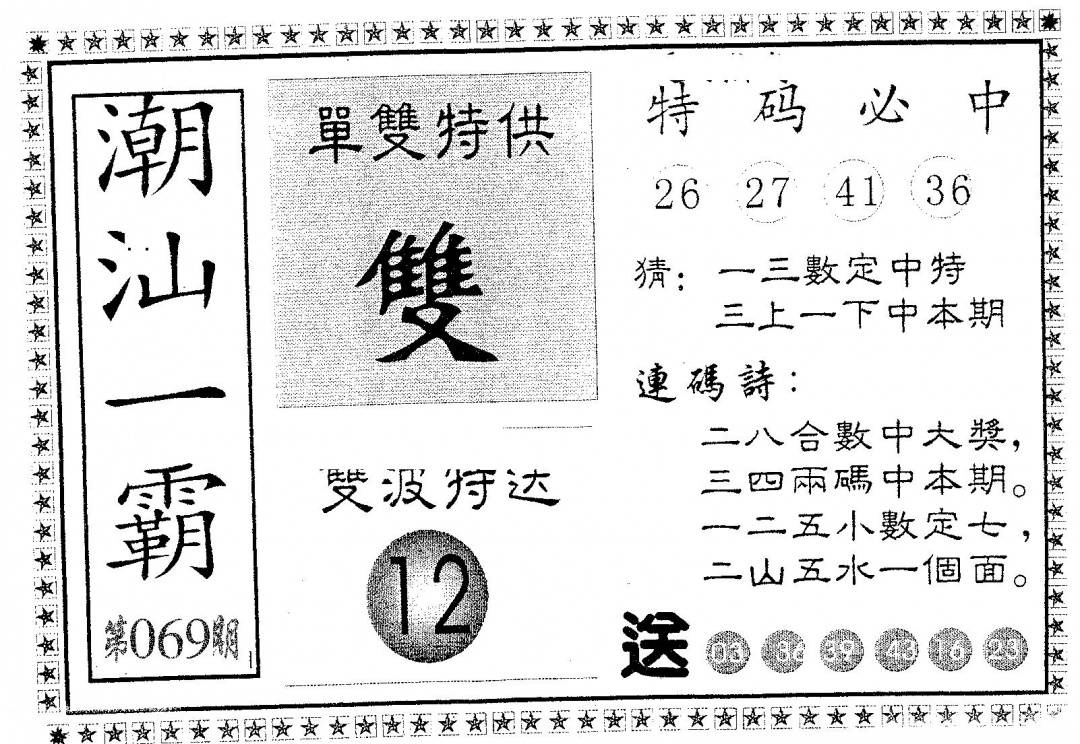 潮汕一霸
第069期
單雙特供
雙
雙波特达
12
特码必中
26 27 41 36
猜：一三數定中特
三上一下中本期
連碼詩：
二八合數中大獎，
三四兩碼中本期。
一二五小數定七，
二山五水一個面。
送 03 36 39 43 16 23